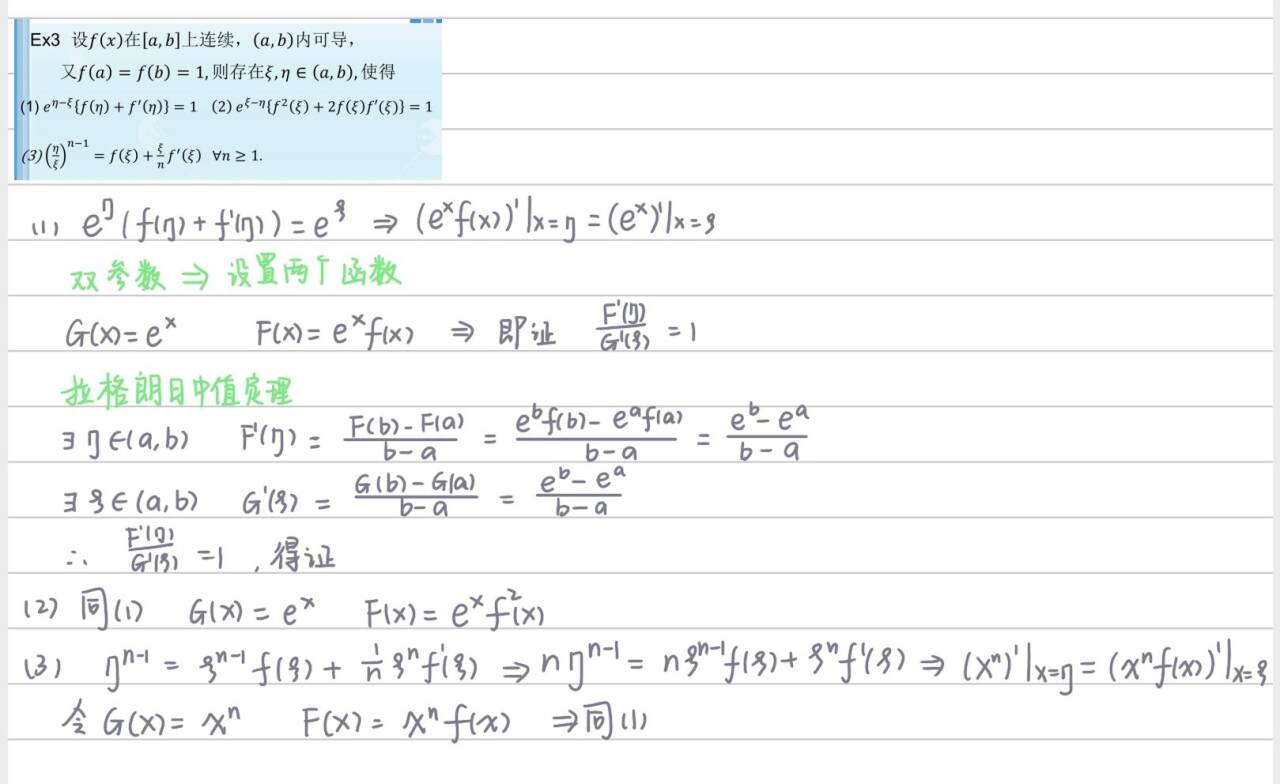 Ex3 设f(x)在[a,b]上连续，(a,b)内可导，
又f(a) = f(b) = 1,则存在ξ,η ∈ (a,b),使得
(1) e^{η−ξ}{f(η) + f′(η)} = 1 (2) e^{ξ−η}{f²(ξ) + 2f(ξ)f′(ξ)} = 1
(3)(η/ξ)^{n−1} = f(ξ) + ξ/n f′(ξ) ∀n ≥ 1.
(1) e^η(f(η) + f'(η)) = e^ξ ⇒ (e^x f(x))'|x=η = (e^x)'|x=ξ
双参数 ⇒ 设置两个函数
G(x)= e^x F(x) = e^x f(x) ⇒ 即证 F'(η)/G'(ξ) = 1
拉格朗日中值定理
∃ η∈(a,b) F'(η) = (F(b) - F(a))/(b-a) = (e^b f(b) - e^a f(a))/(b-a) = (e^b - e^a)/(b-a)
∃ ξ∈(a,b) G'(ξ) = (G(b) - G(a))/(b-a) = (e^b - e^a)/(b-a)
∴ F'(η)/G'(ξ) = 1 , 得证
(2) 同(1) G(x) = e^x F(x) = e^x f²(x)
(3) η^{n-1} = ξ^{n-1} f(ξ) + 1/n ξ^n f'(ξ) ⇒ nη^{n-1} = nξ^{n-1} f(ξ) + ξ^n f'(ξ) ⇒ (x^n)'|x=η = (x^n f(x))'|x=ξ
令 G(x) = x^n F(x) = x^n f(x) ⇒ 同(1)